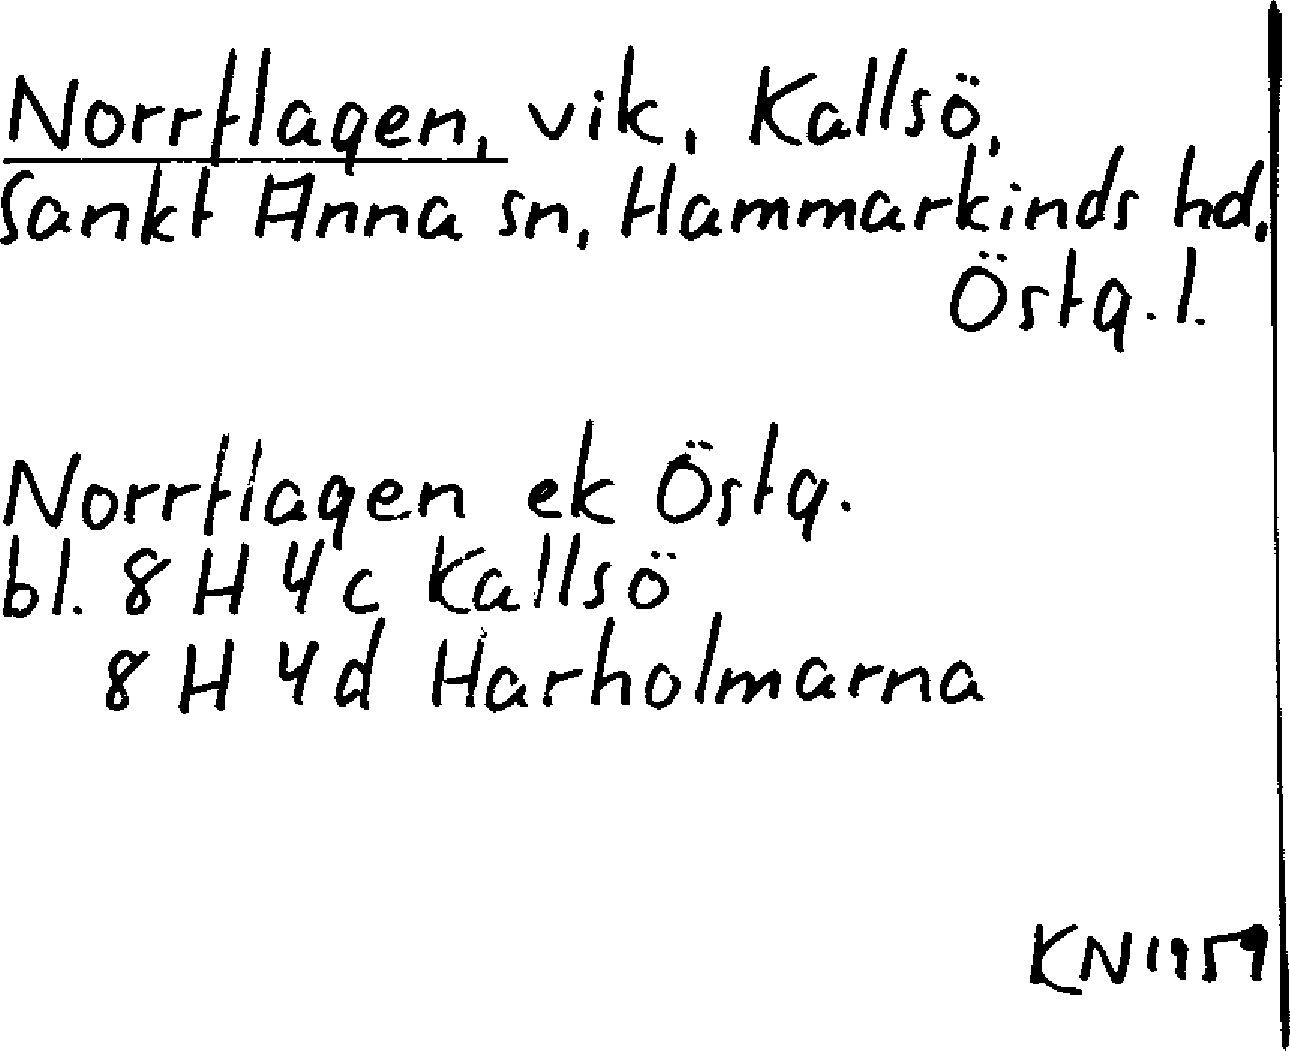 Norrflagen, vik, Kallsö,
Sankt Anna sn, Hammarkinds hd,
Östg. l.
Norrflagen ek Östg.
bl. 8 H 4c Kallsö
8 H 4d Harholmarna
KN 1959